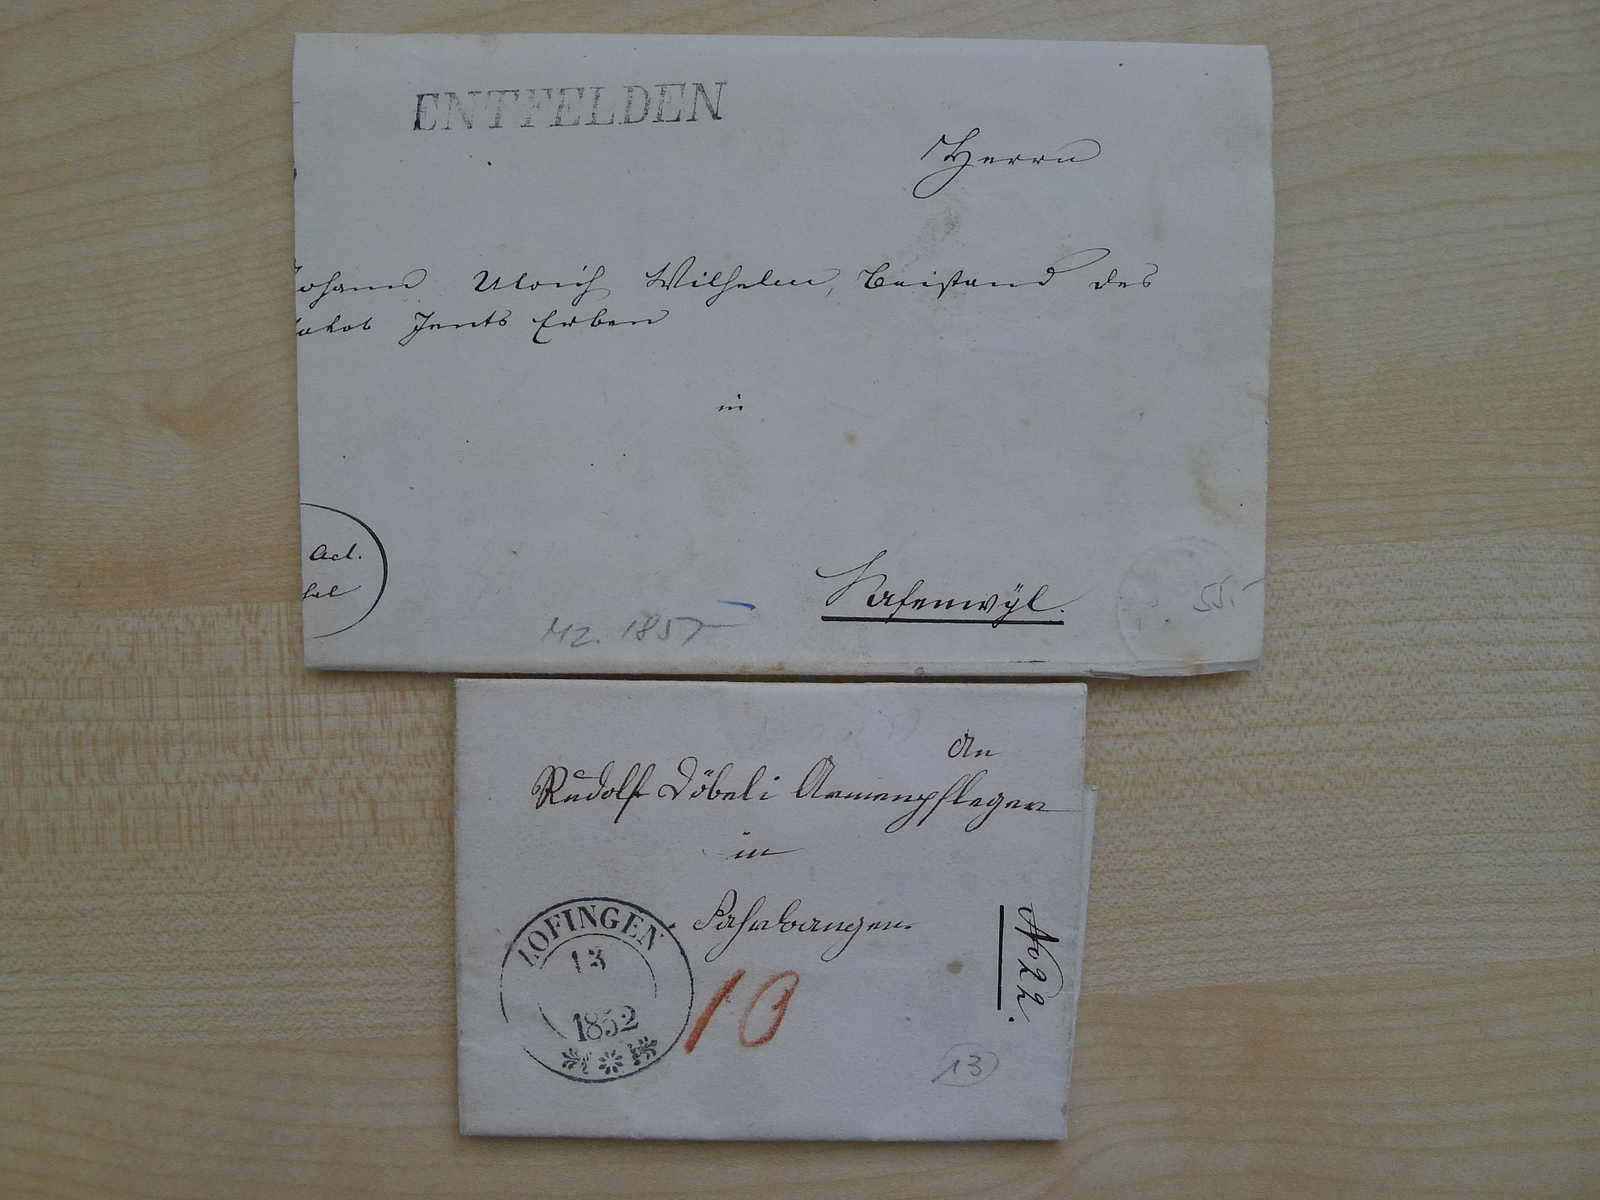 ENTFELDEN
Herrn
Johann Ulrich Wilhelm, Beistand des
Jakob Jents Erben
in
Act.
Safenwÿl.
MZ. 1857
55.-
An
Rudolf Döbeli Armenpfleger
in
Sahrbangen.
ZOFINGEN
13
1852
10
No 22.
13